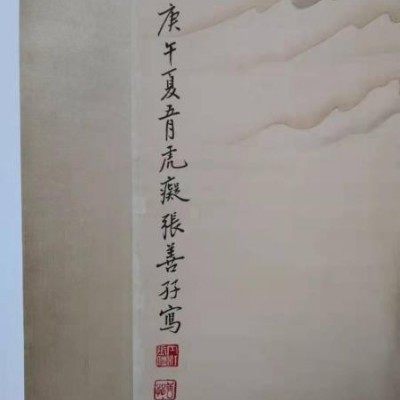 庚午夏五月虎癡張善孖寫